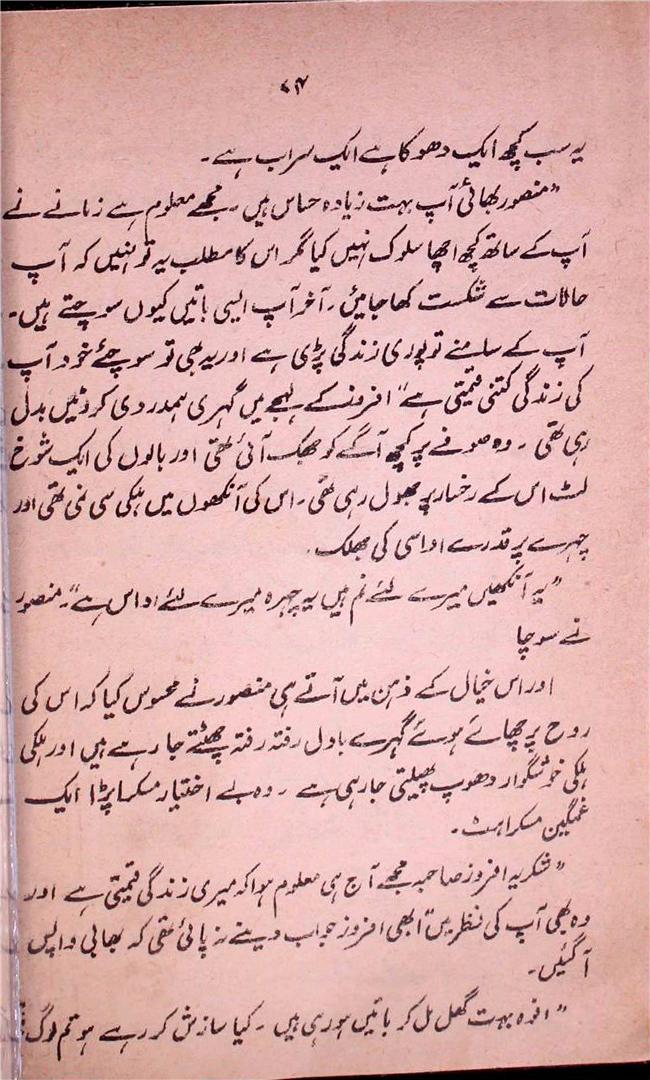 ۷۴
یہ سب کچھ ایک دھوکا ہے ایک سراب ہے۔
"منصور بھائی آپ بہت زیادہ حساس ہیں۔ مجھے معلوم ہے زمانے نے
آپ کے ساتھ کچھ اچھا سلوک نہیں کیا مگر اس کا مطلب یہ تو نہیں کہ آپ
حالات سے شکست کھا جائیں۔ آخر آپ ایسی باتیں کیوں سوچتے ہیں۔
آپ کے سامنے تو پوری زندگی پڑی ہے اور یہ بھی تو سوچئے خود آپ
کی زندگی کتنی قیمتی ہے" افروز کے لہجے میں گہری ہمدردی کروٹیں بدل
رہی تھی۔ وہ صوفے پر کچھ آگے کو جھک آئی تھی اور بالوں کی ایک شوخ
لٹ اس کے رخسار پر جھول رہی تھی۔ اس کی آنکھوں میں ہلکی سی نمی تھی اور
چہرے پر قدرے اداسی کی جھلک۔
"یہ آنکھیں میرے لئے نم ہیں یہ چہرہ میرے لئے اداس ہے"۔ منصور
نے سوچا
اور اس خیال کے ذہن میں آتے ہی منصور نے محسوس کیا کہ اس کی
روح پر چھائے ہوئے گہرے بادل رفتہ رفتہ چھٹتے جا رہے ہیں اور ہلکی
ہلکی خوشگوار دھوپ پھیلتی جا رہی ہے۔ وہ بے اختیار مسکرا پڑا ایک
غمگین مسکراہٹ۔
"شکریہ افروز صاحبہ مجھے آج ہی معلوم ہوا کہ میری زندگی قیمتی ہے اور
وہ بھی آپ کی نظر میں" ابھی افروز جواب دینے نہ پائی تھی کہ بھابی واپس
آگئیں۔
"افوہ بہت گھل مل کر باتیں ہو رہی ہیں۔ کیا سازش کر رہے ہو تم لوگ